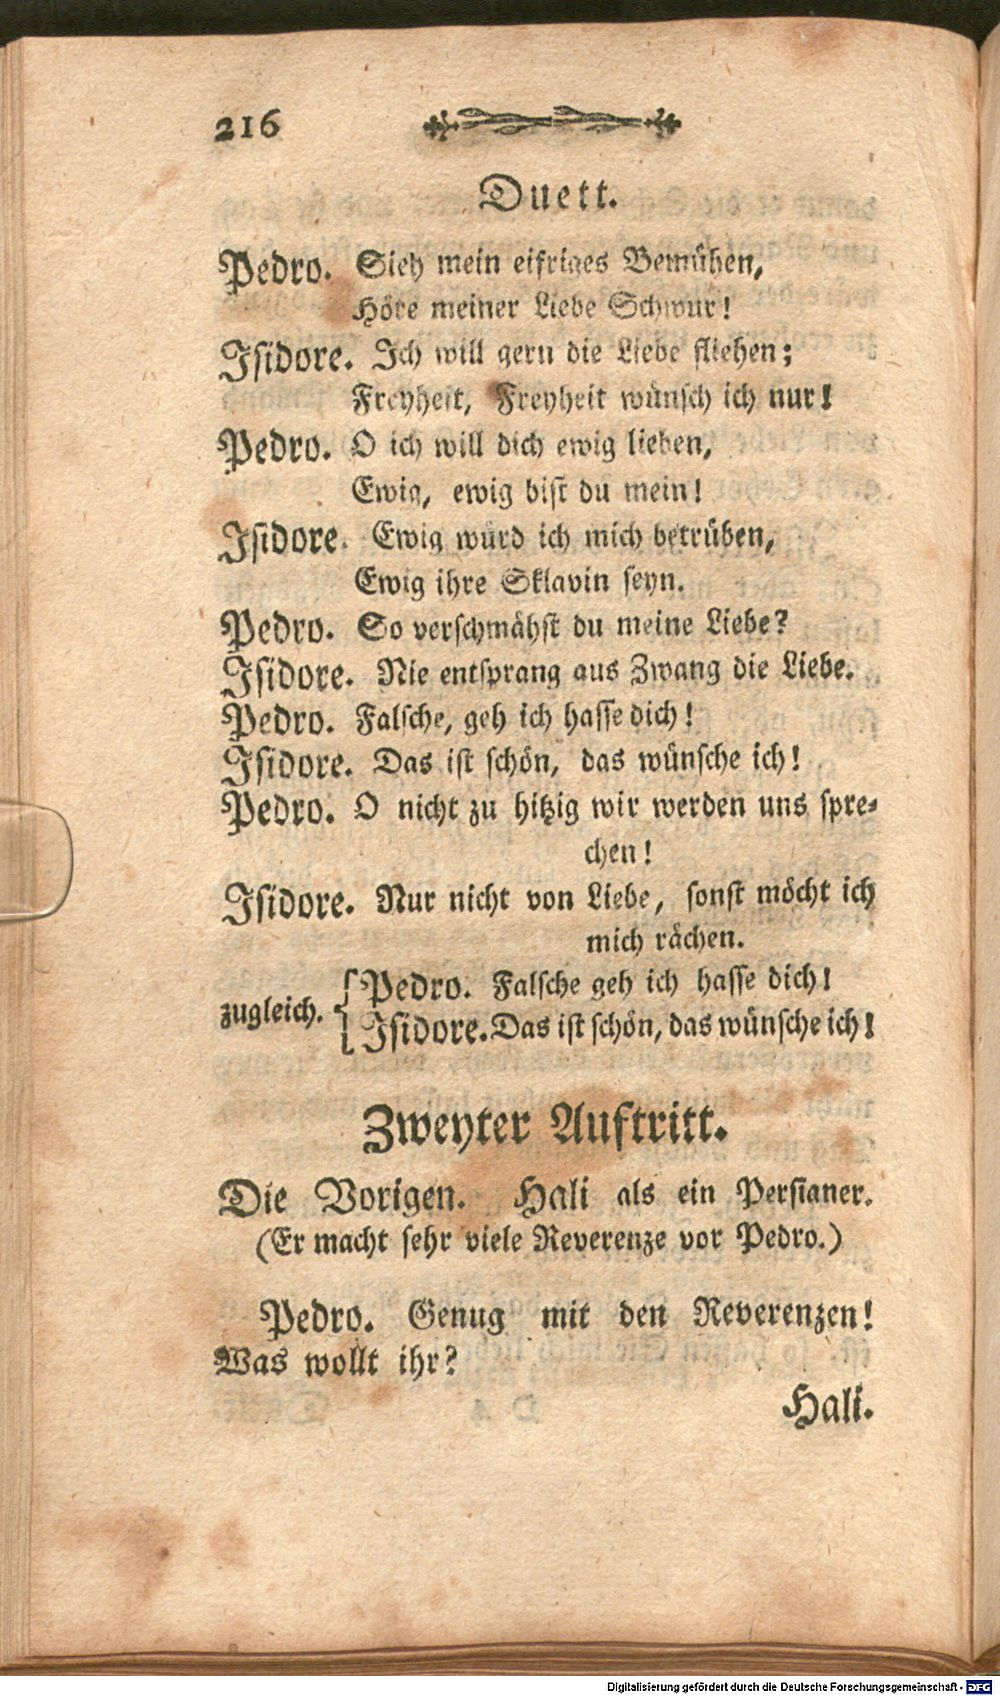 216
Duett.
Pedro. Sieh mein eifriges Bemühen,
Höre meiner Liebe Schwur!
Isidore. Ich will gern die Liebe fliehen;
Freyheit, Freyheit wünsch ich nur!
Pedro. O ich will dich ewig lieben,
Ewig, ewig bist du mein!
Isidore. Ewig würd ich mich betrüben,
Ewig ihre Sklavin seyn.
Pedro. So verschmähst du meine Liebe?
Isidore. Nie entsprang aus Zwang die Liebe.
Pedro. Falsche, geh ich hasse dich!
Isidore. Das ist schön, das wünsche ich!
Pedro. O nicht zu hitzig wir werden uns spre-
chen!
Isidore. Nur nicht von Liebe, sonst möcht ich
mich rächen.
zugleich. { Pedro. Falsche geh ich hasse dich!
Isidore. Das ist schön, das wünsche ich!
Zweyter Auftritt.
Die Vorigen. Hali als ein Persianer.
(Er macht sehr viele Reverenze vor Pedro.)
Pedro. Genug mit den Reverenzen!
Was wollt ihr?
Hali.
Digitalisierung gefördert durch die Deutsche Forschungsgemeinschaft - DFG